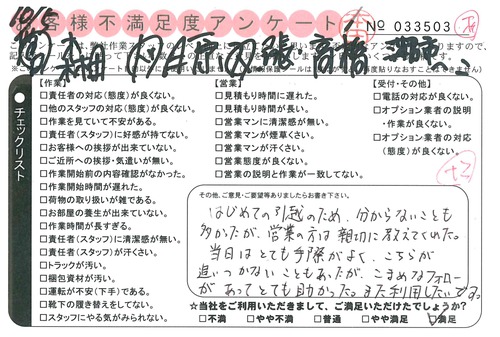 お客様不満足度アンケート
No 033503
チェックリスト
【作業】
□責任者の対応(態度)が良くない。
□他のスタッフの対応(態度)が良くない。
□作業を見ていて不安がある。
□責任者(スタッフ)に好感が持てない。
□お客様への挨拶が出来ていない。
□ご近所への挨拶・気遣いが無い。
□作業開始前の内容確認がなかった。
□作業開始時間が遅れた。
□荷物の取り扱いが雑である。
□お部屋の養生が出来ていない。
□作業時間が長すぎる。
□責任者(スタッフ)に清潔感が無い。
□責任者(スタッフ)が汗くさい。
□トラックが汚い。
□梱包資材が汚い。
□運転が不安(下手)である。
□靴下の履き替えをしてない。
□スタッフにやる気がみられない。
【営業】
□見積もり時間に遅れた。
□見積もり時間が長い。
□営業マンに清潔感が無い。
□営業マンが煙草くさい。
□営業マンが汗くさい。
□営業態度が良くない。
□営業の説明と作業が一致してない。
【受付・その他】
□電話の対応が良くない。
□オプション業者の説明
・作業が良くない。
□オプション業者の対応
(態度)が良くない。
その他、ご意見・ご要望等ありましたらお書き下さい。
はじめての引越のため、分からないことも
多かたが、営業の方は親切に教えてくれた。
当日はとても手際がよく、こちらが
追いつかないこともあったが、こまめなフォロー
があってとても助かった。また利用したいです。
☆当社をご利用いただきまして、ご満足いただけたでしょうか?
□不満 □やや不満 □普通 □やや満足 ☑満足